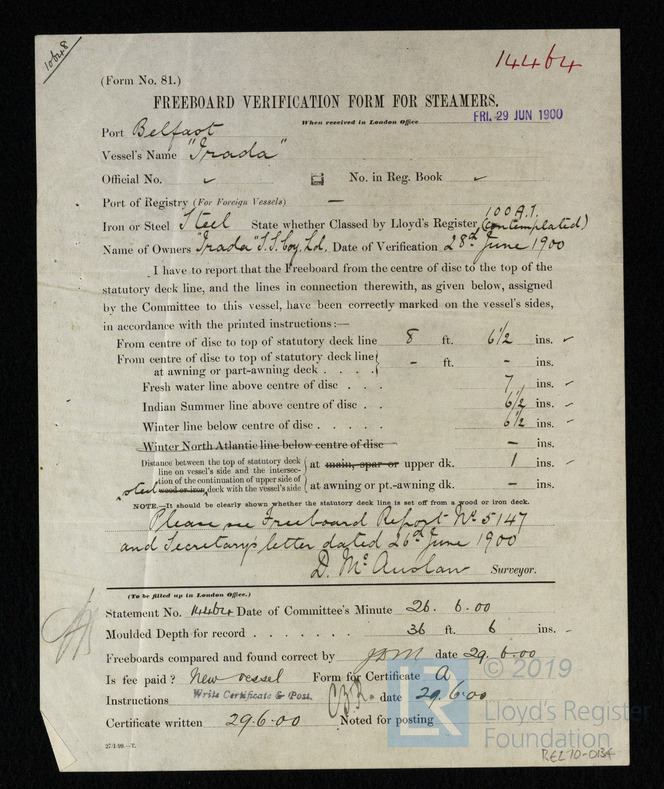 10648
14464
(Form No. 81.)
FREEBOARD VERIFICATION FORM FOR STEAMERS.
When received in London Office FRI. 29 JUN 1900
Port Belfast
Vessel's Name "Irada"
Official No. ✓ No. in Reg. Book ✓
Port of Registry (For Foreign Vessels) —
100 A.1.
Iron or Steel Steel State whether Classed by Lloyd's Register (Contemplated)
Name of Owners "Irada" S.S. Coy. Ld. Date of Verification 28th June 1900
I have to report that the Freeboard from the centre of disc to the top of the
statutory deck line, and the lines in connection therewith, as given below, assigned
by the Committee to this vessel, have been correctly marked on the vessel's sides,
in accordance with the printed instructions :—
From centre of disc to top of statutory deck line 8 ft. 6½ ins. ✓
From centre of disc to top of statutory deck line
at awning or part-awning deck . . . . - ft. - ins.
Fresh water line above centre of disc . . . 7 ins. ✓
Indian Summer line above centre of disc . . 6½ ins. ✓
Winter line below centre of disc . . . . . 6½ ins. ✓
Winter North Atlantic line below centre of disc — ins.
Distance between the top of statutory deck
line on vessel's side and the intersec- at main, spar or upper dk. 1 ins. ✓
tion of the continuation of upper side of
steel wood or iron, deck with the vessel's side at awning or pt.-awning dk. — ins.
NOTE.—It should be clearly shown whether the statutory deck line is set off from a wood or iron deck.
Please see Freeboard Report No. 5147
and Secretary's letter dated 26th June 1900
D. McAuslan Surveyor.
(To be filled up in London Office.)
Statement No. 14464 Date of Committee's Minute 26. 6.00
Moulded Depth for record . . . . . . . 36 ft. 6 ins.
Freeboards compared and found correct by date 29.6.00
Is fee paid? New vessel Form for Certificate A
Instructions Write Certificate & Post. C.B.R. date 29.6.00
Certificate written 29.6.00 Noted for posting
27/1/99.—T.
© 2019
LR
Lloyd's Register
Foundation
REL10-0134